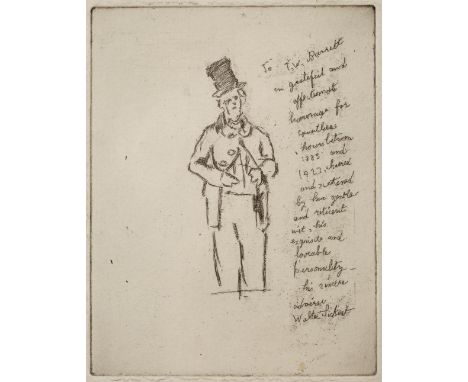 To T.W. Barrett
in grateful and
affectionate
homage for
countless
hours between
1885 and
1923, cheered
and
by his gentle
and reticent
wit, his
exquisite and
lovable
personality —
his sincere
admirer
Walter Sickert